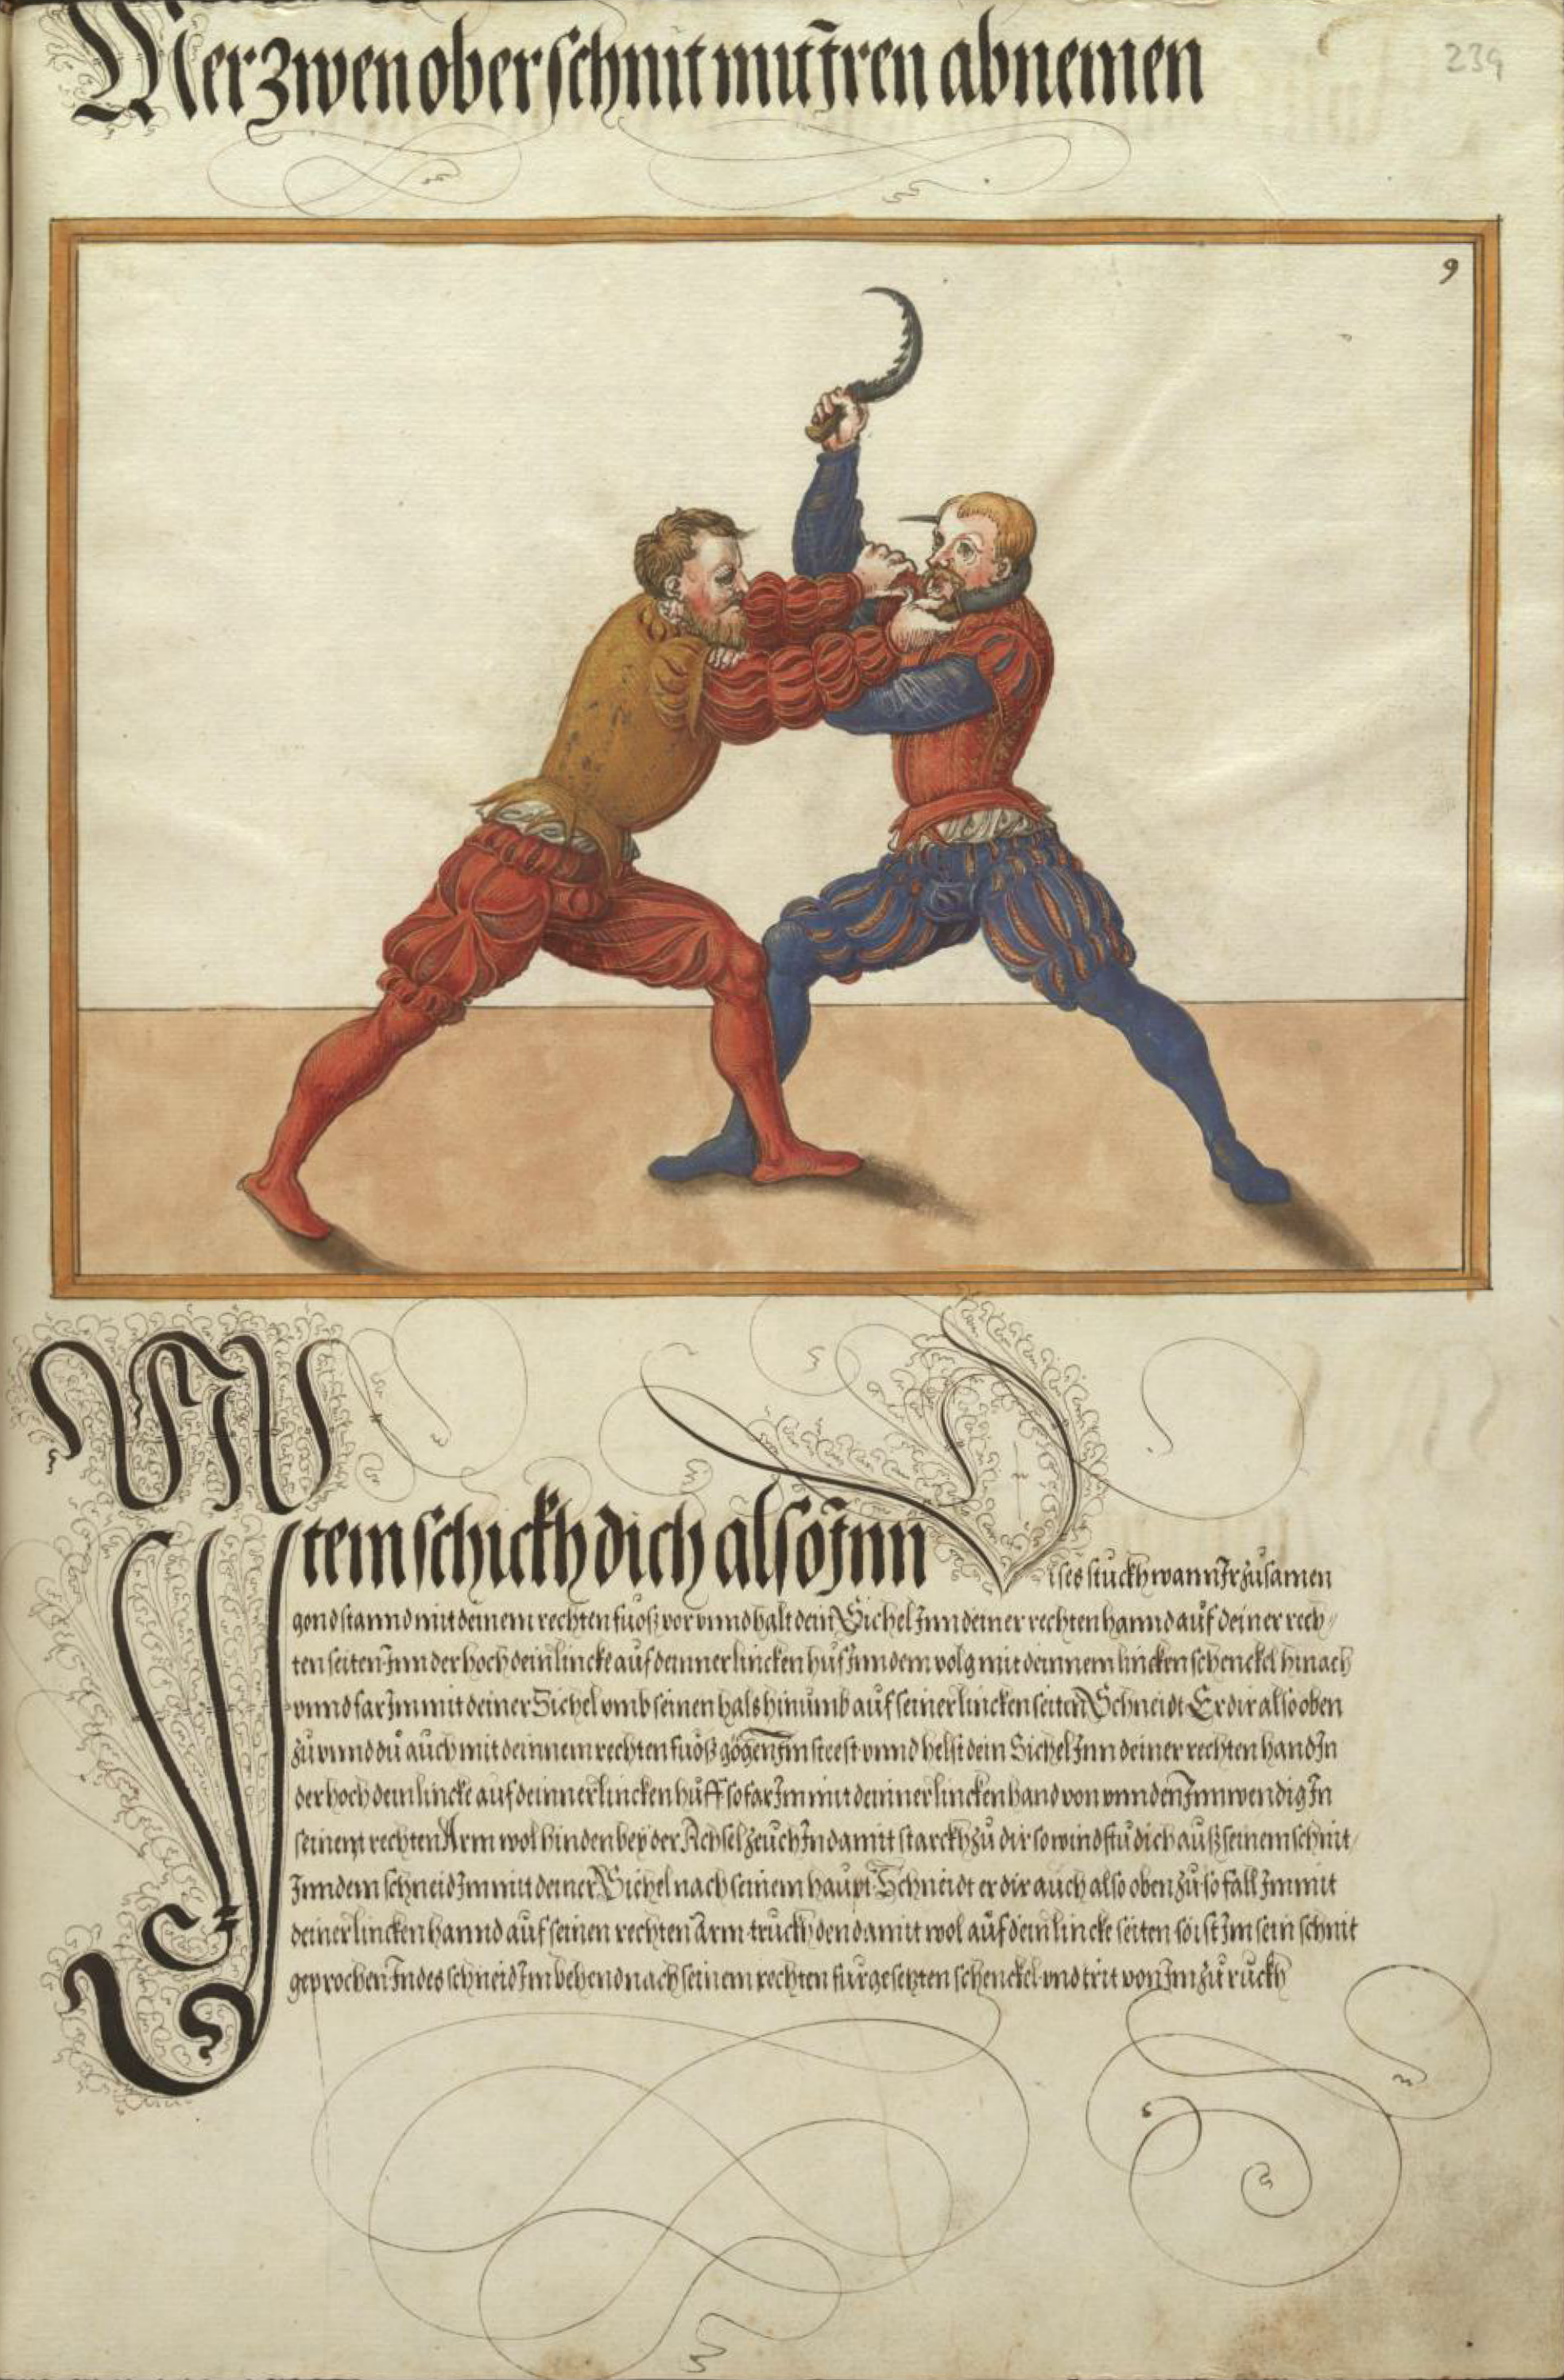 Mer zwen oberschnit mit Iren abnemen
239
9
Item schickh dich also Inn
dises stuckh wann Ir zůsamen
gond stannd mit deinem rechten fuoß vor vnnd halt dein Sichel Inn deiner rechten hannd auf deiner rech-
ten seiten Inn der hoch dein lincke auf deinner lincken huf Inn dem volg mit deinnem lincken schenckel hinach
vnnd far Im mit deiner Sichel vmb seinen hals hinumb auf seiner lincken seiten Schneidt Er dir also oben
zů vnnd dů auch mit deinnem rechten fůoß gögen Im steest vnnd helst dein Sichel Inn deiner rechten hand In
der hoch dein lincke auf deinner lincken huff so far Im mit deinner lincken hand von vnnden Innwendig In
seinem rechten Arm wol hinden bey der Achsel zeuch In damit starckh zů dir so windstu dich auß seinem schnit/
Inn dem schneid Im mit deiner Sichel nach seinem haupt Schneidt er dir auch also oben zů so fall Im mit
deiner lincken hannd auf seinen rechten Arm truckh den damit wol auf dein lincke seiten so ist Im sein schnit
geprochen Indes schneid Im behend nach seinem rechten fürgesetzten schenckel vnd trit von Im zů růckh